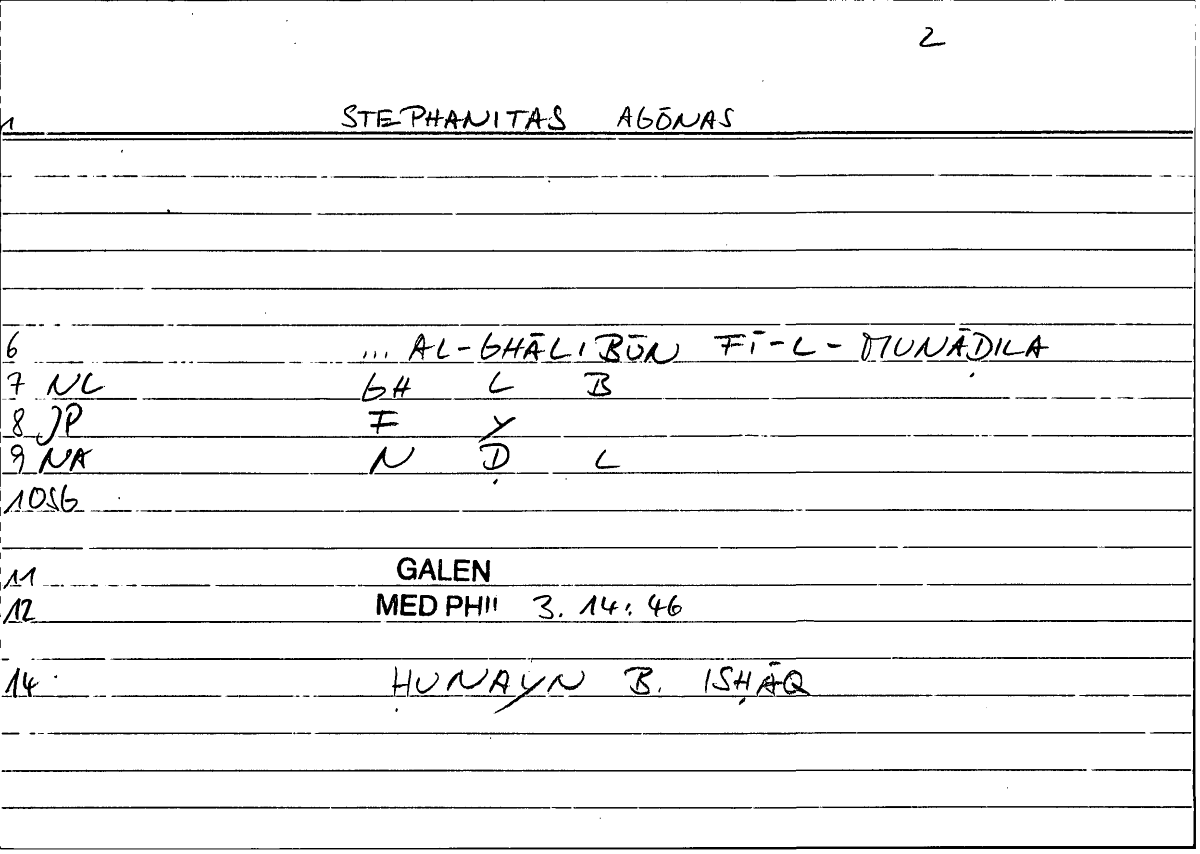 2
1 STEPHANITAS AGŌNAS
6 ... AL-GHĀLIBŪN FĪ-L-MUNĀḌILA
7 NC GH L B
8 JP F Y
9 NA N Ḍ L
10SG
11 GALEN
12 MED PHIL 3. 14: 46
14 ḤUNAYN B. ISḤĀQ